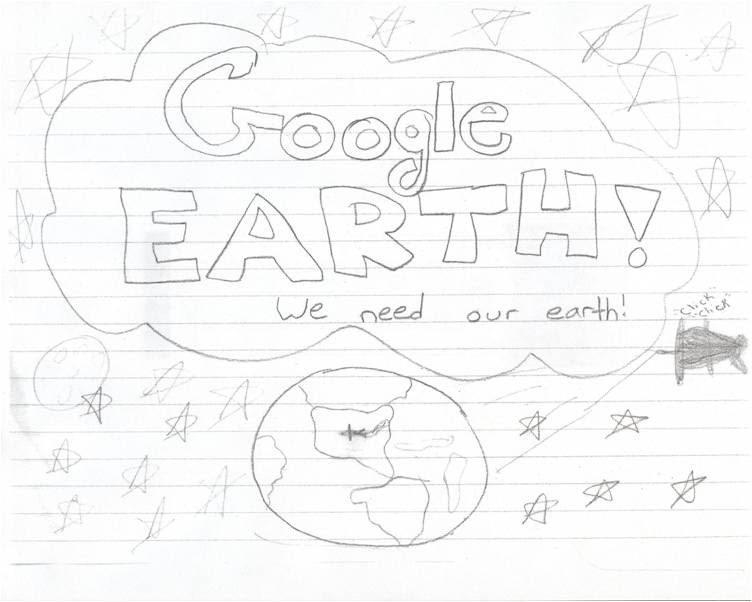 Google
EARTH!
We need our earth!
"click"
"click"